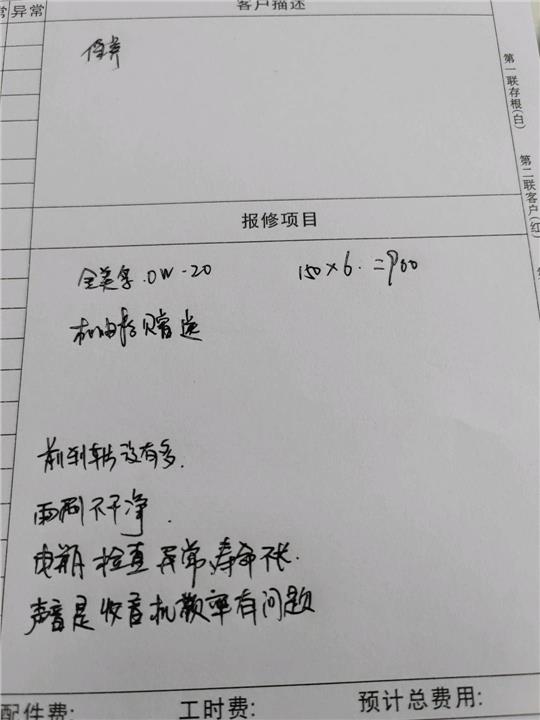 常 异常 客户描述
保养
第一联存根(白)
第二联客户(红)
报修项目
全美孚.0W-20 150×6.=900
机油格赠送
前刹车片没有多.
雨刷不干净.
电瓶检查异常,寿命不长.
声音是收音机散率有问题
配件费: 工时费: 预计总费用: